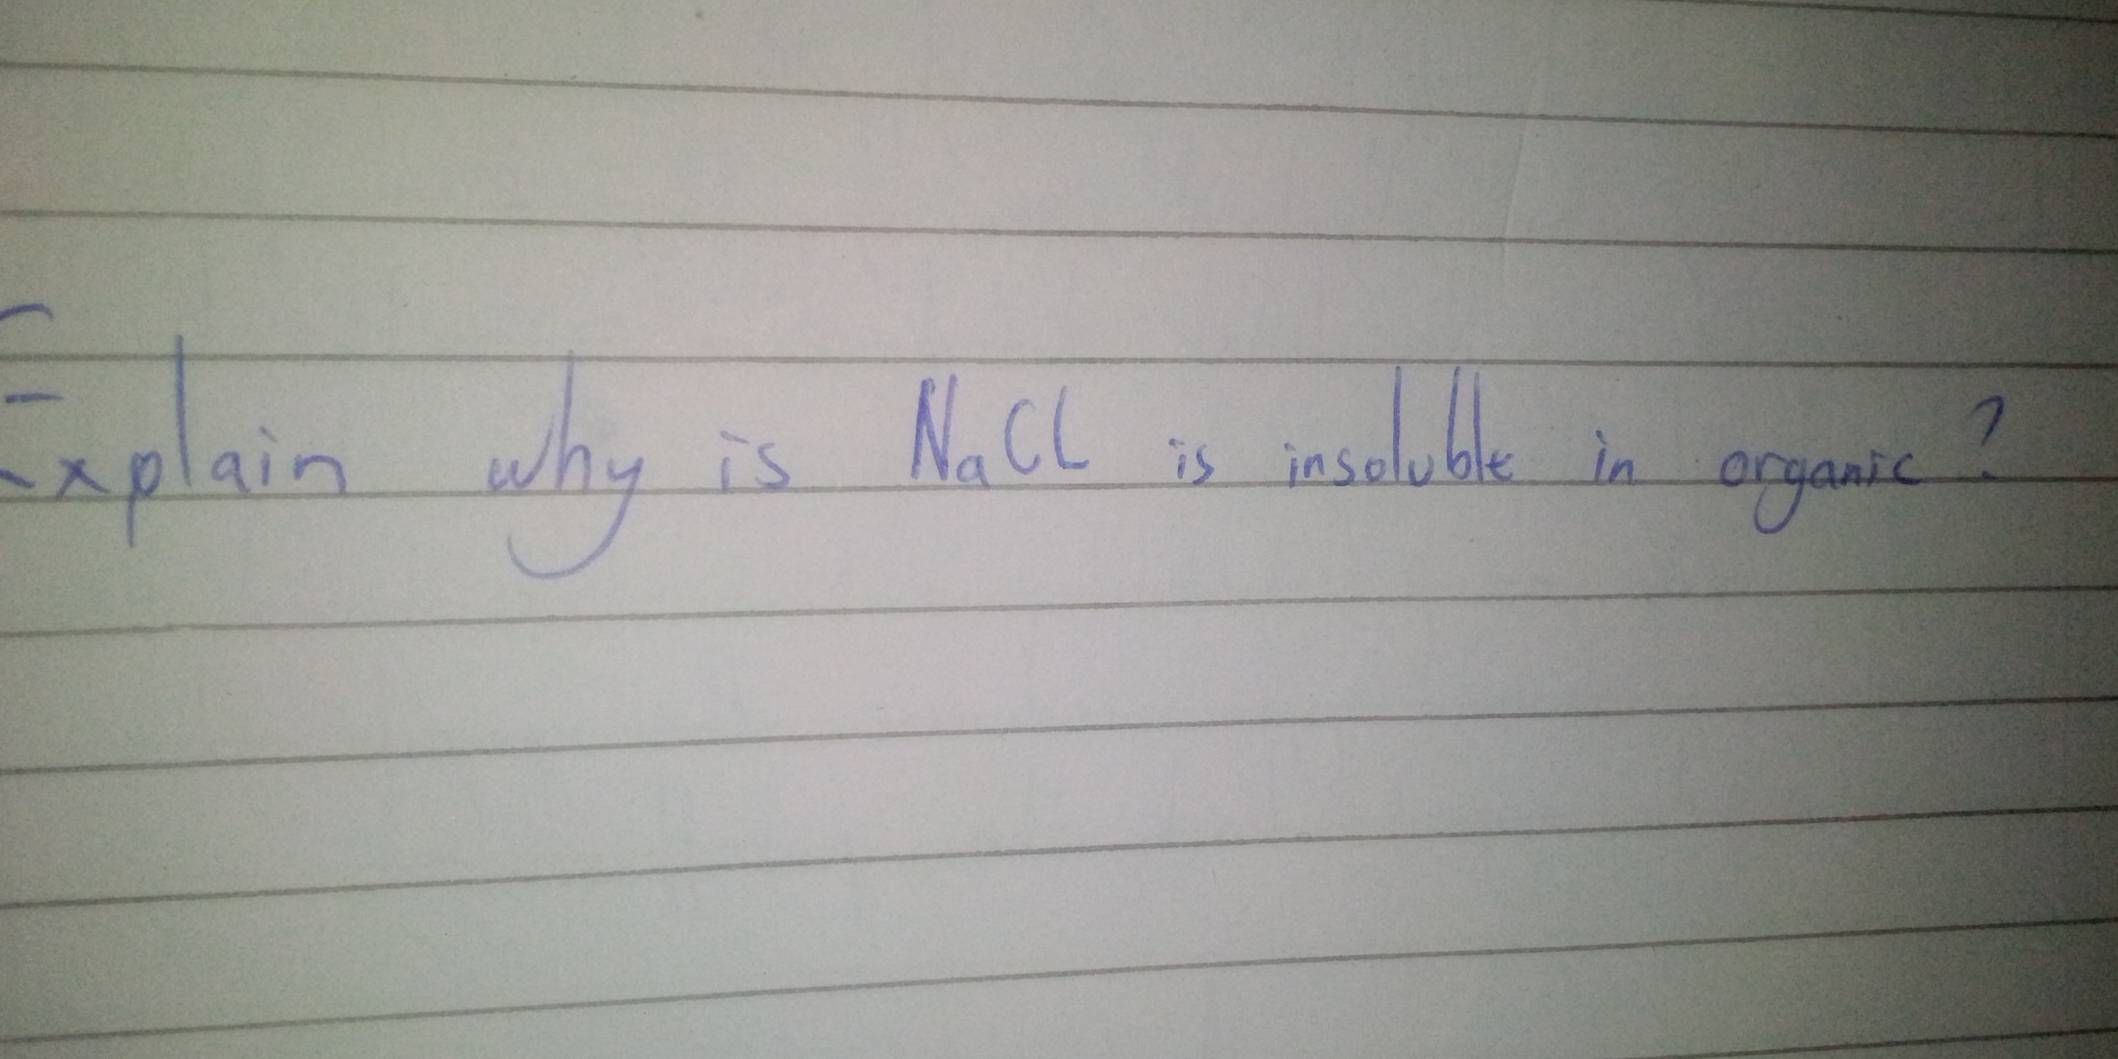 Explain why is NaCl is insoluble in organic?